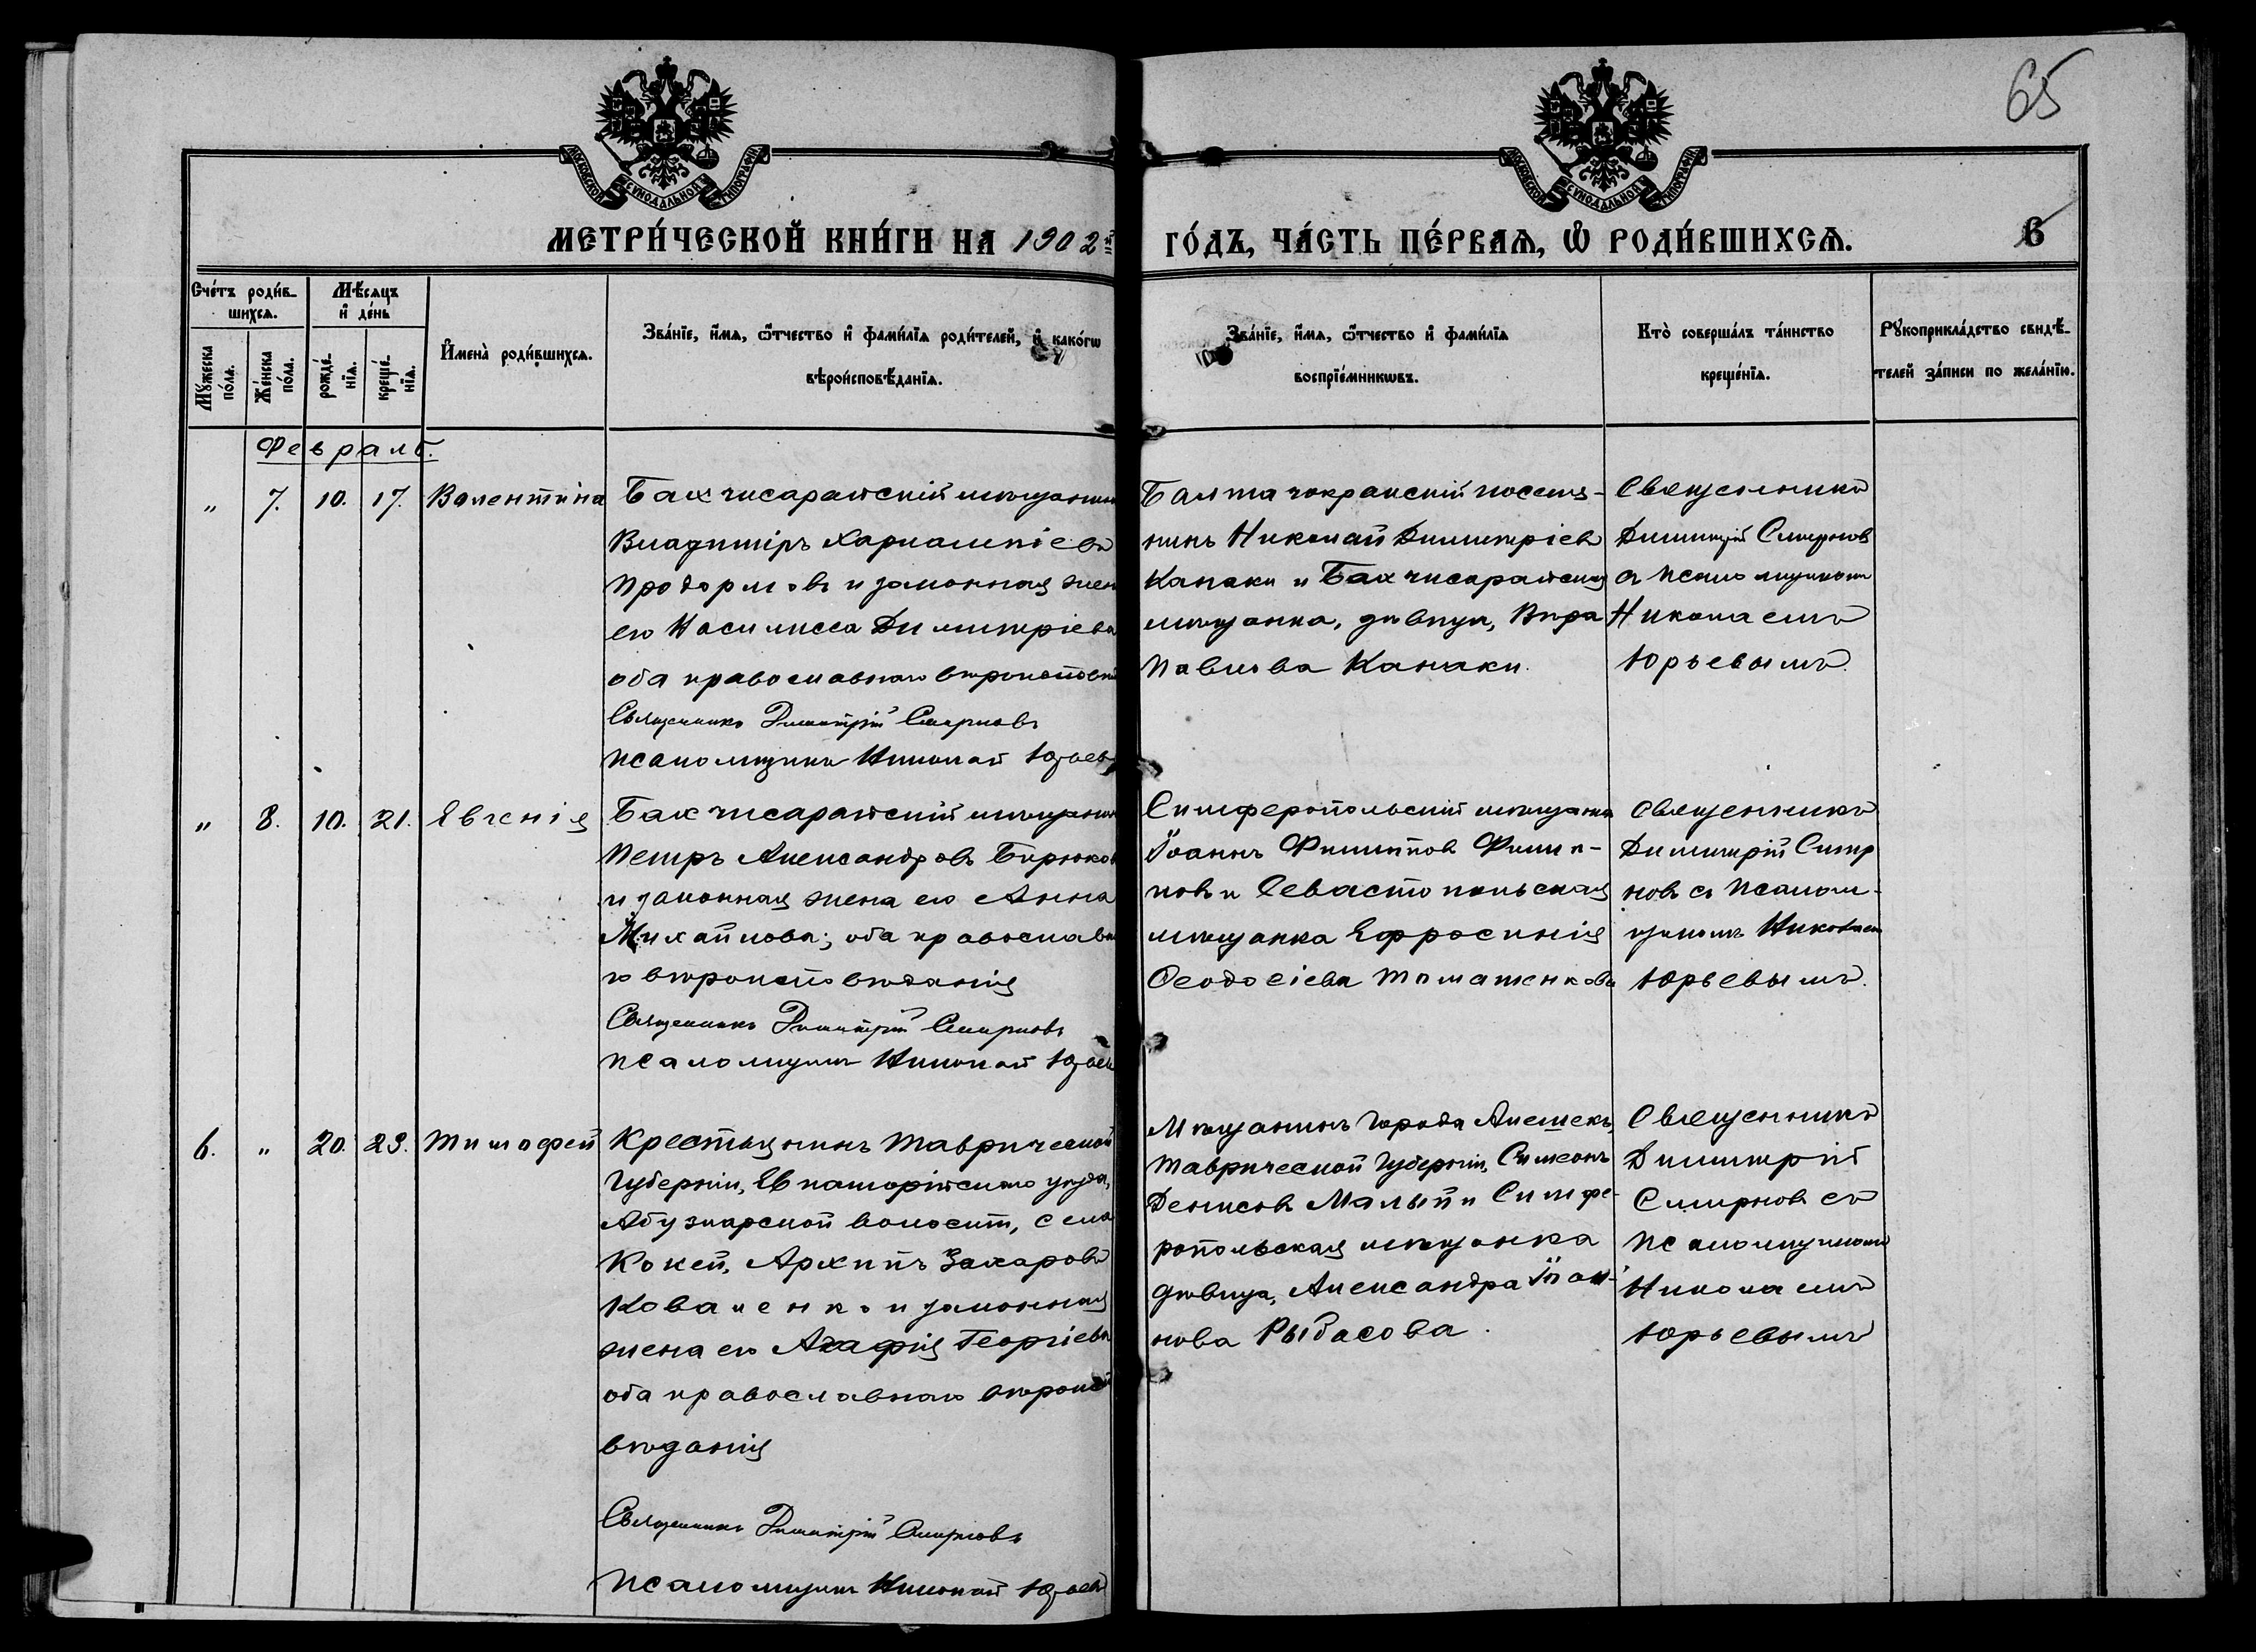 65
МОСКОВСКОЙ СѴНОДАЛЬНОЙ ТИПОГРАФІИ
МОСКОВСКОЙ СѴНОДАЛЬНОЙ ТИПОГРАФІИ
МЕТРИ́ЧЕСКОЙ КНИ́ГИ НА 1902й ГО́ДЪ, ЧА́СТЬ ПЕ́РВАѦ, Ѡ РОДИ́ВШИХСѦ. 6
Сче́тъ роди́в-
шихсѧ.
Мꙋ́жеска по́ла.
Же́нска по́ла.
Мѣ́сѧцъ
и҆ де́нь
рожде́-
нїѧ.
креще́-
нїѧ.
И҆мена̀ роди́вшихсѧ.
Зва́нїе, и҆́мѧ, ѻ҆́тчество и҆ фамѝлїѧ роди́телей, и҆ како́гѡ
вѣроисповѣ́данїѧ.
Зва́нїе, и҆́мѧ, ѻ҆́тчество и҆ фамѝлїѧ
воспрїе́мникѡвъ.
Кто̀ соверша́лъ та́инство
креще́нїѧ.
Рꙋкоприкла́дство свидѣ́-
телей за́писи по жела́нїю.
Февраль.
" 7. 10. 17. Валентина
Бахчисарайскій мѣщанин
Владиміръ Харлампіевъ
Продормовъ и законная жен
его Васмлисса Димитріева
оба православнаго вѣроисповѣ
Священникъ Димитрій Смирновъ
Псаломщикъ Николай Юрьев
Балтачокракскій поселя-
нинъ Николай Димитріевъ
Канаки и Бахчисарайская
мѣщанка, дѣвица, Вѣра
Павлова Канаки.
Священникъ
Димитрій Смирновъ
съ псаломщикомъ
Николаемъ
Юрьевымъ.
" 8. 10. 21. Евгенія
Бахчисарайскій мѣщанин
Петръ Александровъ Бирюков
и законная жена его Анна
Михайлова; оба православна
го вѣроисповѣданія
Священникъ Димитрій Смирновъ
Псаломщикъ Николай Юрьев
Симферопольскій мѣщанин
Іоаннъ Филипповъ Филип-
повъ и Севастопольская
мѣщанка Ефросинія
Ѳеодосіева Томашенкова
Священникъ
Димитрій Смир
новъ съ Псалом-
щикомъ Николаем
Юрьевымъ.
6. " 20. 23. Тимофей
Крестьянинъ Таврической
Губерніи, Евпаторійскаго уѣзда,
Абузларской волости, села
Кокей, Архипъ Захаровъ
Коваленко и законная
жена его Агафія Георгіева
оба православнаго вѣроисп
вѣданія
Священникъ Димитрій Смирновъ
Псаломщикъ Николай Юрьевъ
Мѣщанинъ города Алешекъ,
Таврической Губерніи, Симеонъ
Денисовъ Малый и Симфе-
ропольская мѣщанка
дѣвица, Александра Іоан-
нова Рыбасова.
Священникъ
Димитрій
Смирновъ съ
Псаломщикомъ
Николаемъ
Юрьевымъ